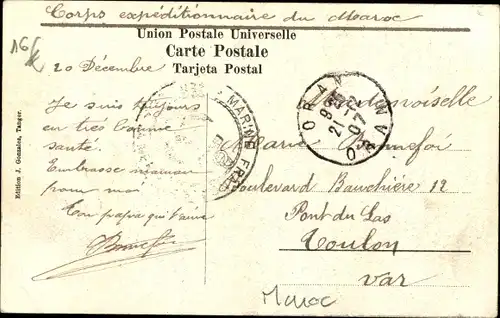 Corps expéditionnaire du Maroc
16f
Union Postale Universelle
Carte Postale
Tarjeta Postal
20 Décembre
Je suis toujours
en très bonne
santé.
Embrasse maman
pour moi
Ton papa qui t'aime
Bonnefoi
Edition J. Gonzalez, Tanger.
MARINE FRA
ORAN
ORAN
07
Mademoiselle
Marie Bonnefoi
Boulevard Bauchière 12
Pont du Las
Toulon
Var
Maroc